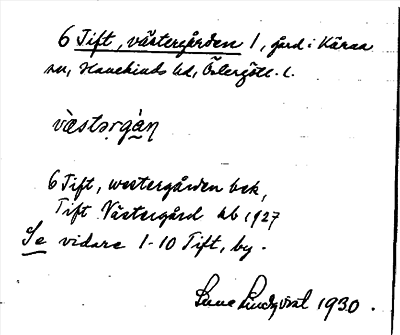 6 Tift, västergården 1, gård i Kärna
sn, Hanekinds hd, Östergötl. l.
västərgàn
6 Tift, westergården bsk,
Tift Västergård kb 1927
Se vidare 1-10 Tift, by.
Sune Lindqvist 1930.